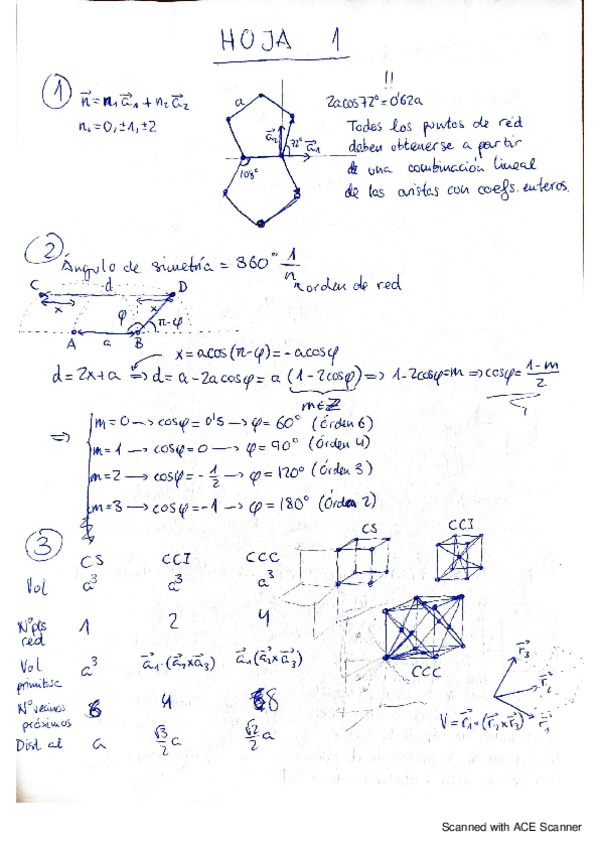 HOJA 1
① n⃗ = n₁a⃗₁ + n₂a⃗₂
nᵢ = 0, ±1, ±2
a
a⃗₂
72°
a⃗₁
108°
!!
2acos72° = 0'62a
Todos los puntos de red
deben obtenerse a partir
de una combinación lineal
de las aristas con coefs. enteros.
② Ángulo de simetría = 360° 1/n
orden de red
C d D
x x
φ π-φ
A a B
x = acos(π-φ) = -acosφ
d = 2x + a ⇒ d = a - 2acosφ = a (1 - 2cosφ) ⇒ 1 - 2cosφ = m ⇒ cosφ = (1-m)/2
m ∈ ℤ
⇒ m = 0 → cosφ = 0'5 → φ = 60° (Órden 6)
m = 1 → cosφ = 0 → φ = 90° (Órden 4)
m = 2 → cosφ = -1/2 → φ = 120° (Órden 3)
m = 3 → cosφ = -1 → φ = 180° (Órden 2)
③ CS CCI CCC
Vol a³ a³ a³
Nº pts red 1 2 4
Vol primitiva a³ a⃗₁·(a⃗₂×a⃗₃) a⃗₁·(a⃗₂×a⃗₃)
Nº vecinos próximos 6 4 8
Dist al a √3/2 a √2/2 a
CS
CCI
CCC
r⃗₃
r⃗₂
r⃗₁
V = r⃗₁·(r⃗₂×r⃗₃)
Scanned with ACE Scanner